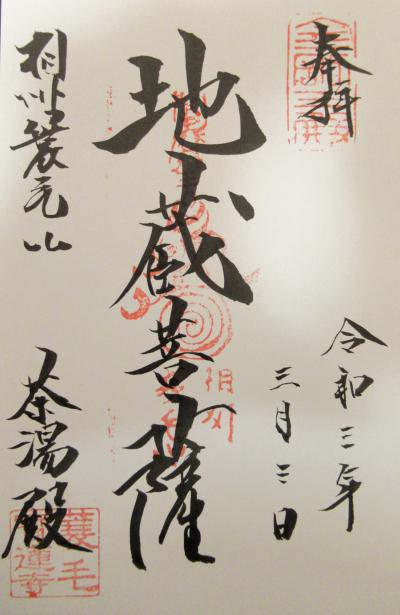 奉拝
令和三年
三月三日
地蔵菩薩
相州蓑毛山
茶湯殿
相州
蓑毛
蓮寺